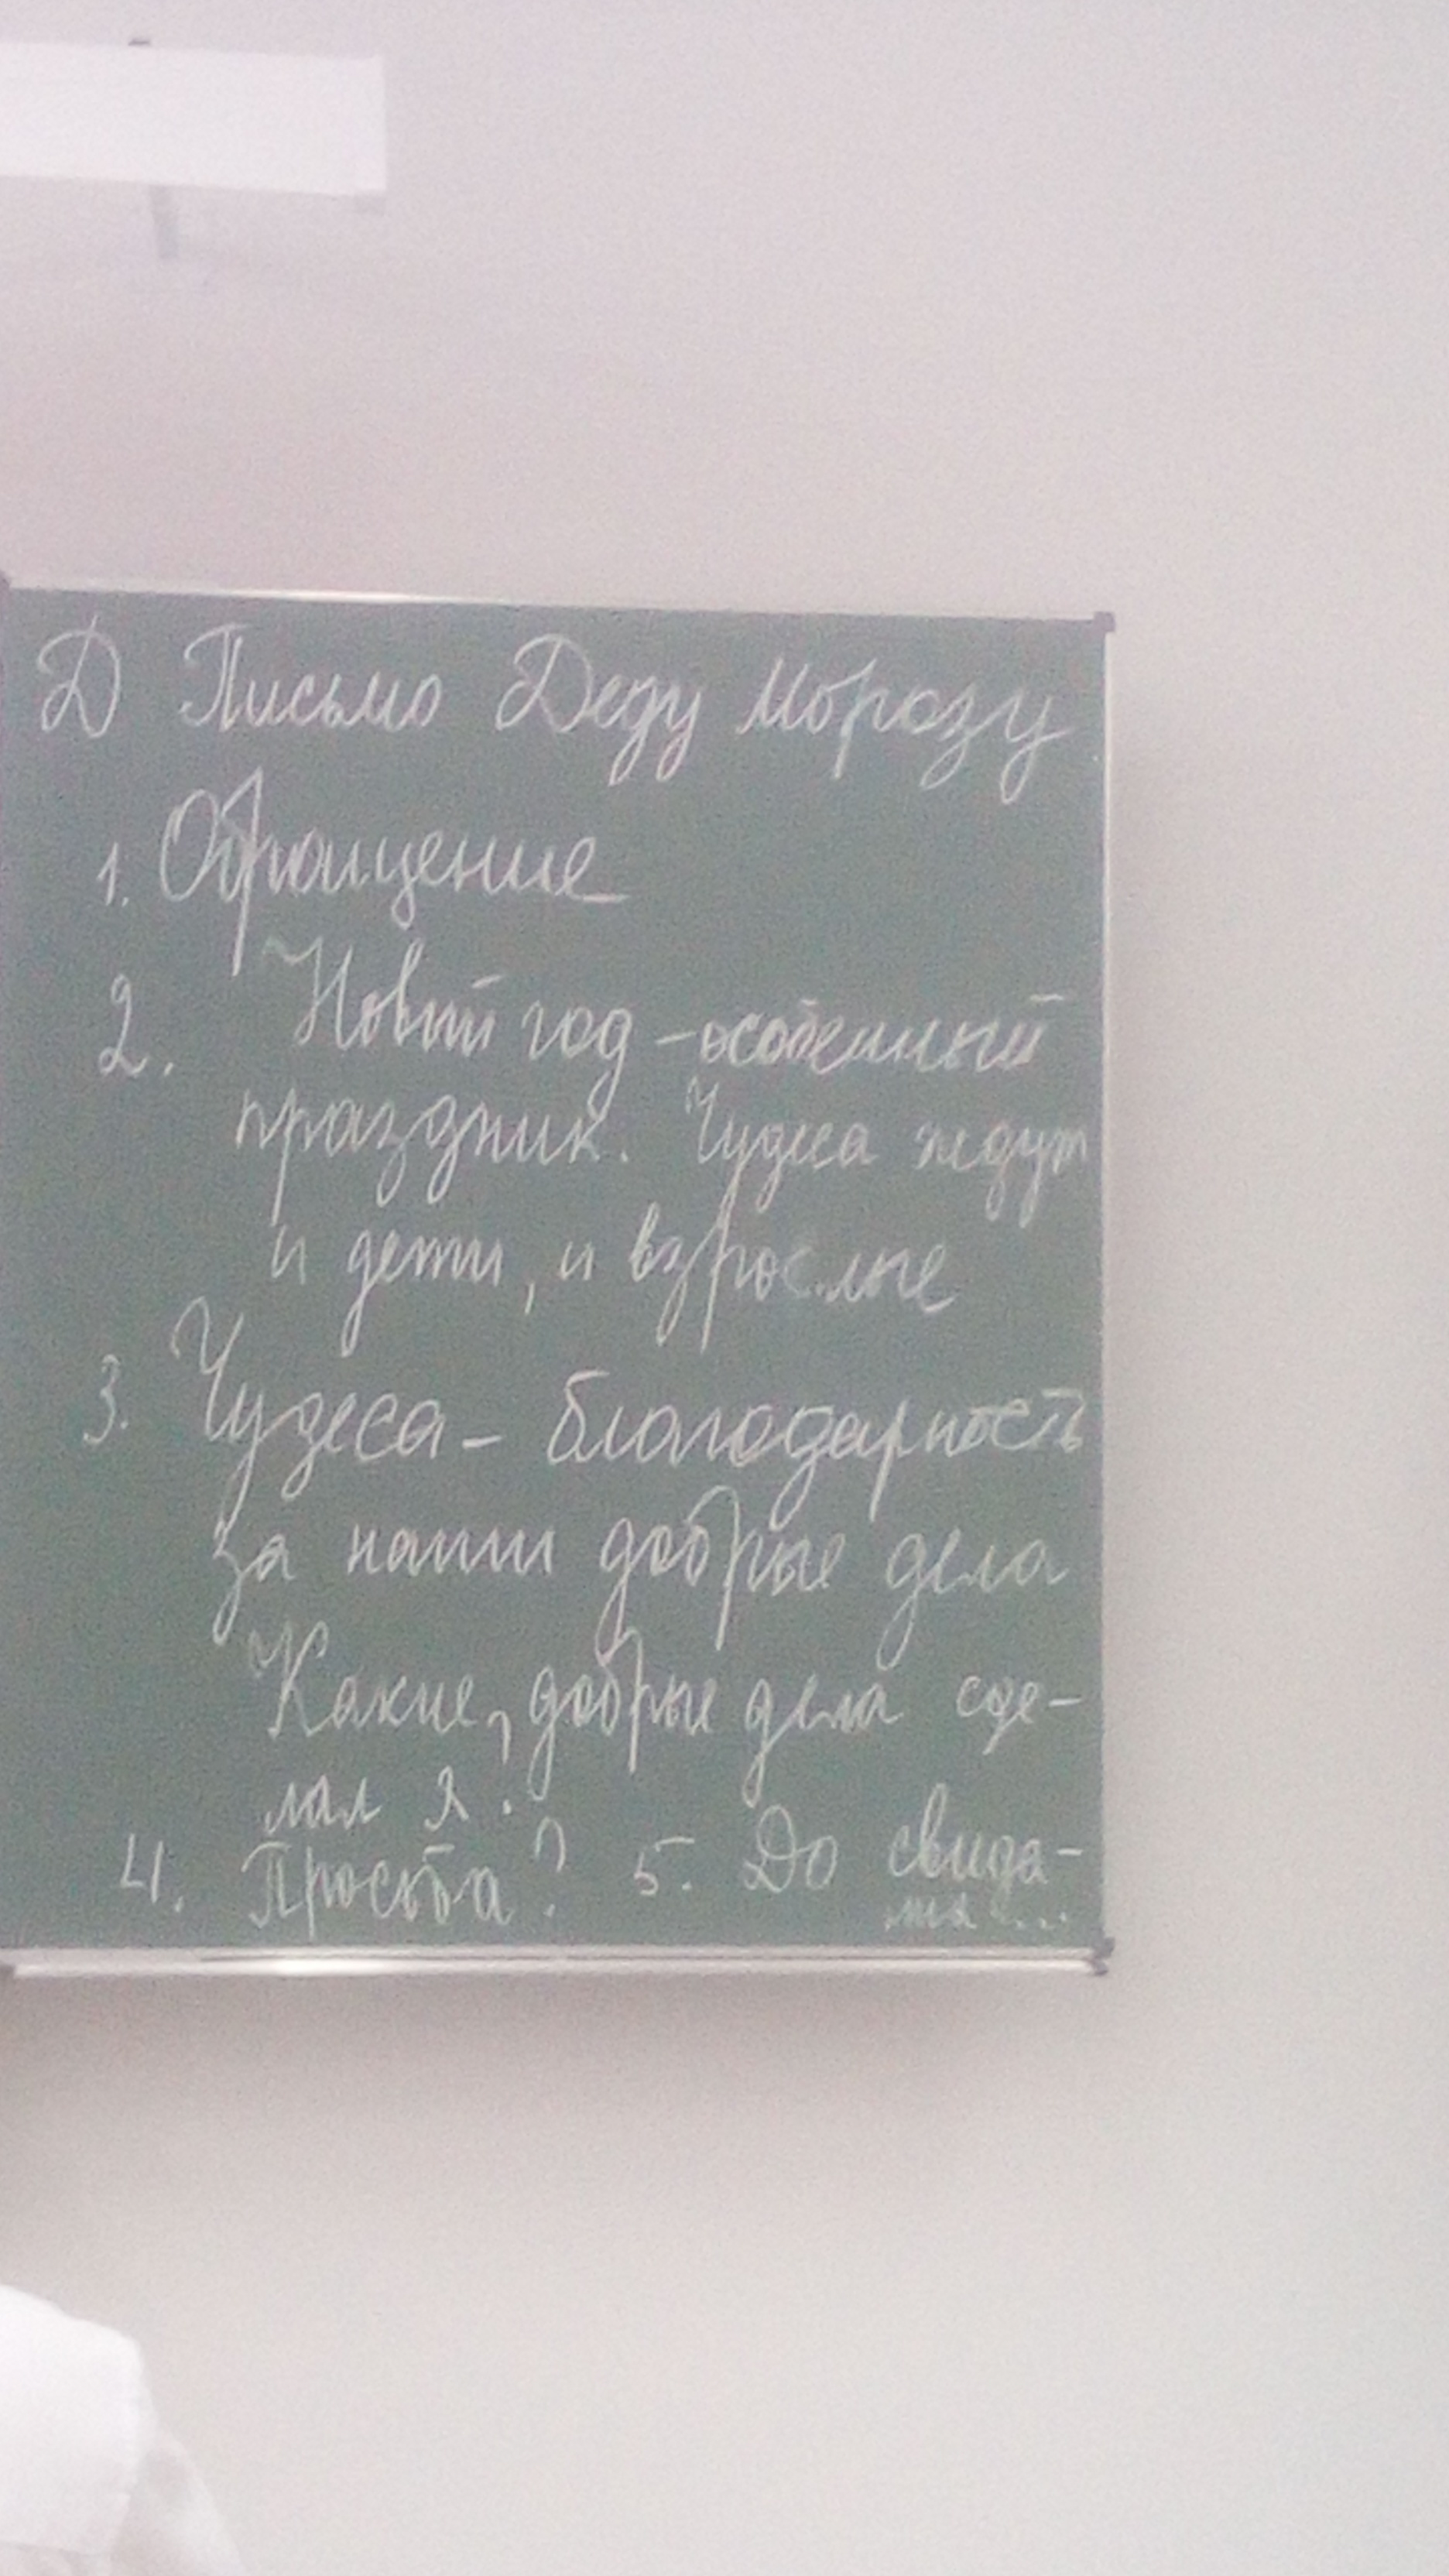 Д Письмо Деду Морозу
1. Обращение
2. Новый год - особенный
праздник. Чудеса ждут
и дети, и взрослые
3. Чудеса - благодарность
за наши добрые дела
Какие добрые дела сде-
лал я?
4. Просьба? 5. До свида-
ния...